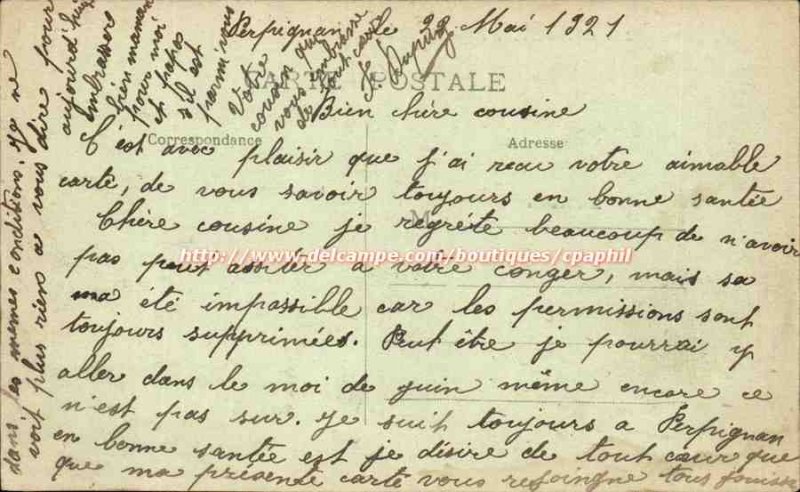 Perpignan le 28 Mai 1921
CARTE POSTALE
Bien chère cousine
Correspondance
Adresse
C'est avec plaisir que j'ai recu votre aimable
carte, de vous savoir toujours en bonne santée
Chère cousine je regrète beaucoup de n'avoir
pas peut assiter a votre conger, mais sa
ma été impossible car les permissions sont
toujours supprimées. Peut être je pourrai y
aller dans le moi de juin même encore ce
n'est pas sur. Je suit toujours a Perpignan
en bonne santée est je désire de tout cœur que
que ma présente carte vous rejoingne tous
dans les mêmes conditions. Je ne
voit plus rien a vous dire pour
aujourd'hui
embrassere
bien maman
pour moi
et papas
s'il est
parmi vous
Votre
cousin qui
vous embrasse
de tout cœur
http://www.delcampe.com/boutiques/cpaphil